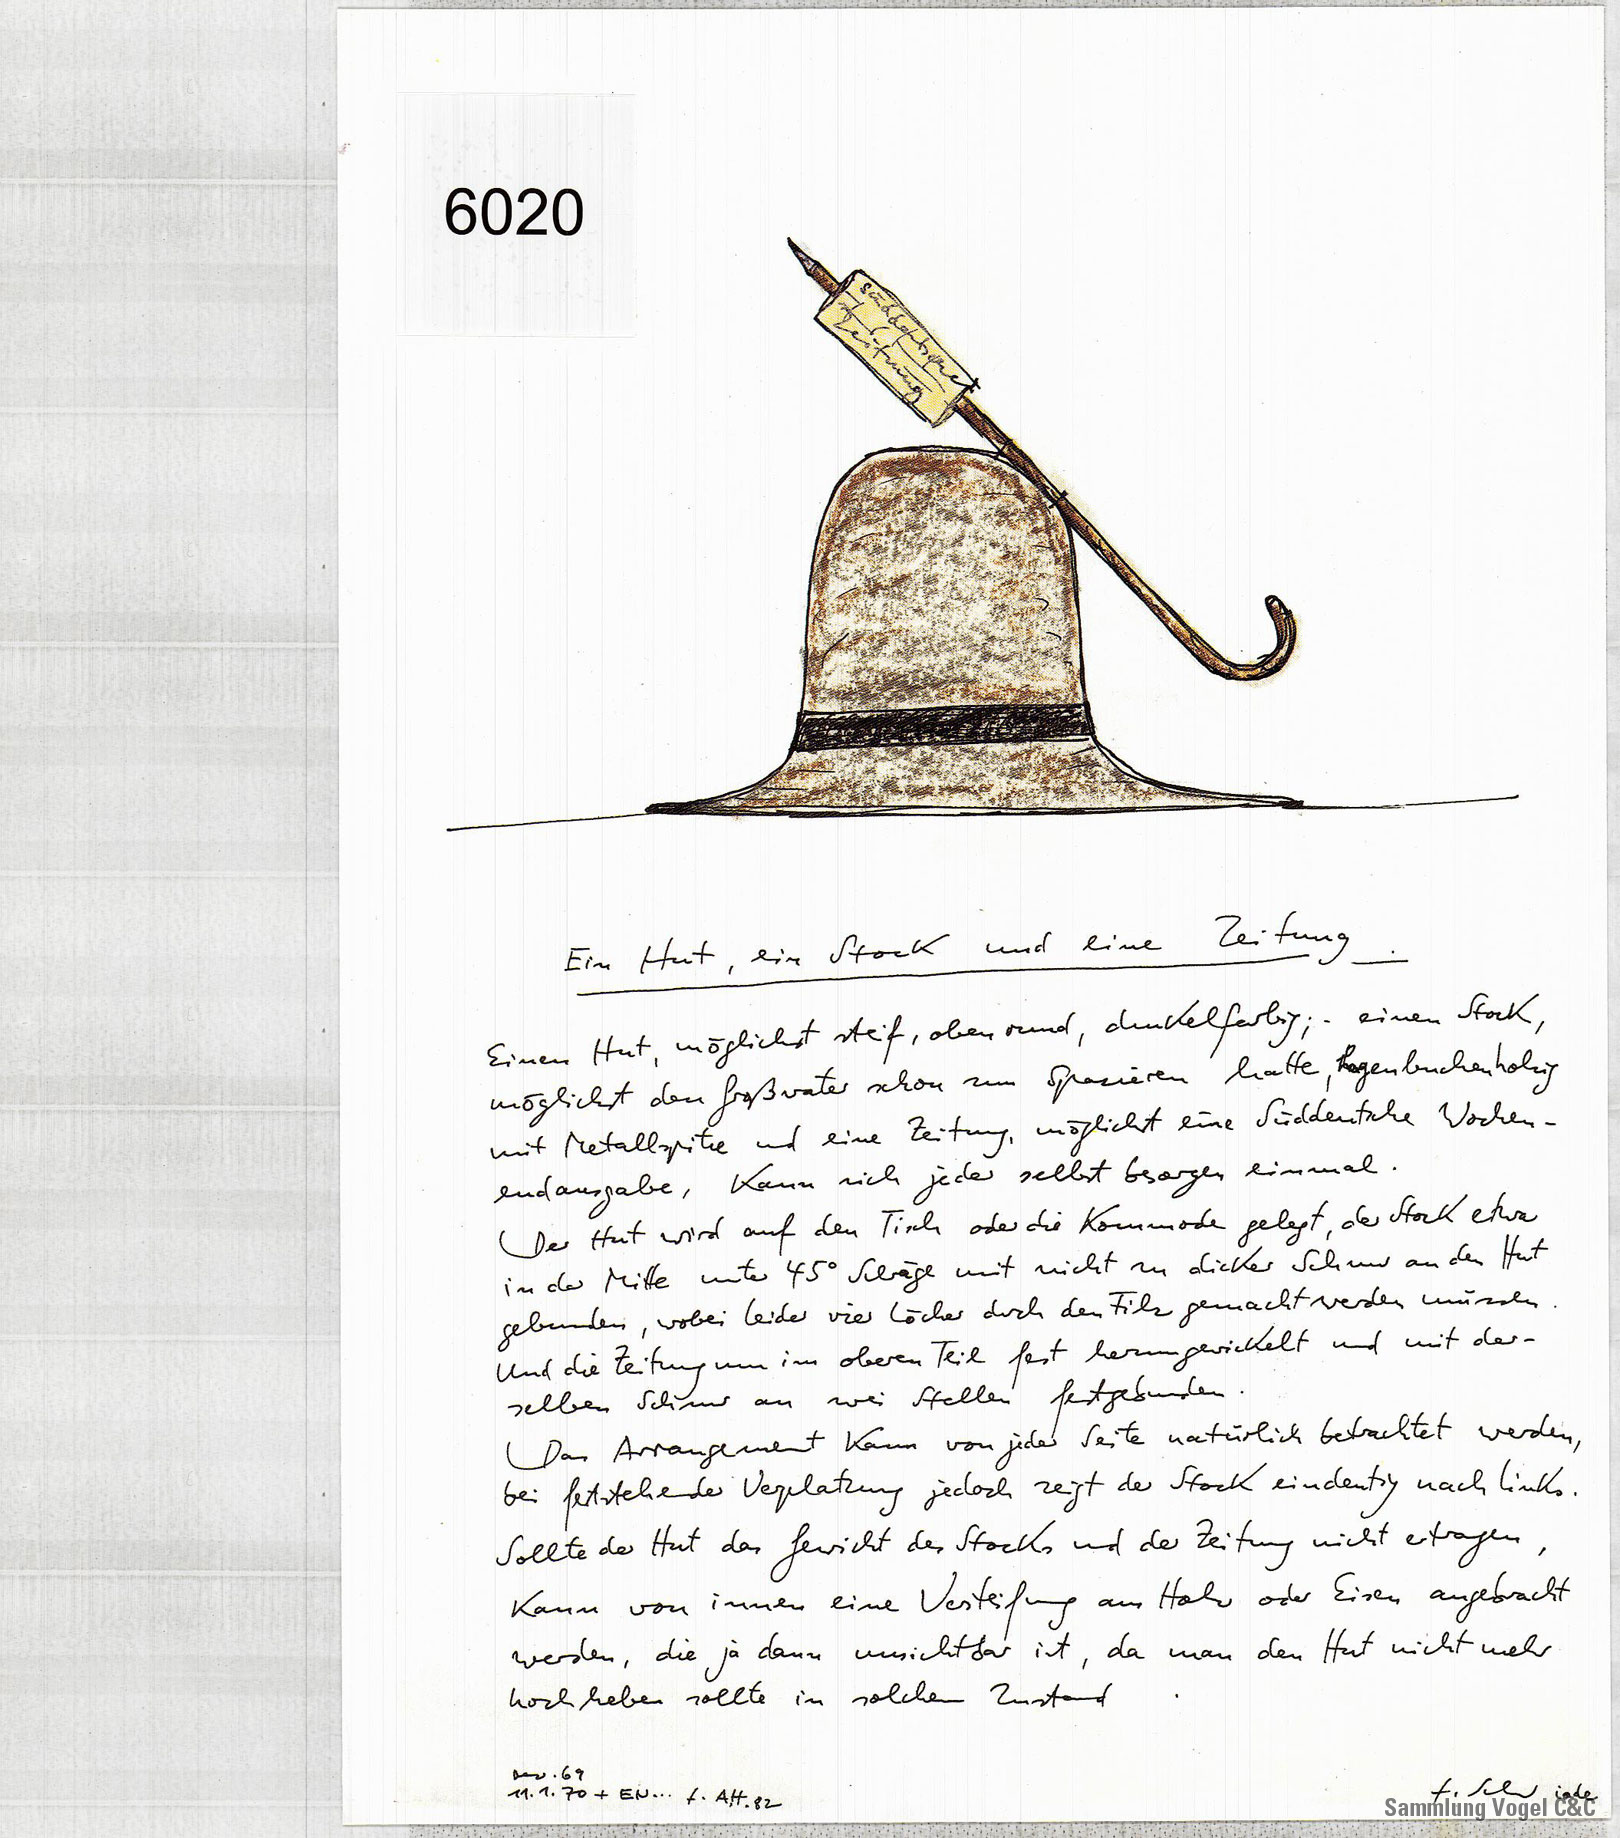 6020
Süddeutsche
Zeitung
Ein Hut, ein Stock und eine Zeitung.
Einen Hut, möglichst steif, oben rund, dunkelfarbig; - einen Stock,
möglichst den Großvater schon zum Spazieren hatte, hagenbuchenholzig
mit Metallspitze und eine Zeitung, möglichst eine Süddeutsche Wochen-
endausgabe, kann sich jeder selbst besorgen einmal.
Der Hut wird auf den Tisch oder die Kommode gelegt, der Stock etwa
in der Mitte unter 45° Schräge mit nicht zu dicker Schnur an den Hut
gebunden, wobei leider vier Löcher durch den Filz gemacht werden müssen.
Und die Zeitung nun im oberen Teil fest herumgewickelt und mit der-
selben Schnur an zwei Stellen festgebunden.
Das Arrangement kann von jeder Seite natürlich betrachtet werden,
bei feststehender Verplatzung jedoch zeigt der Stock eindeutig nach links.
Sollte der Hut das Gewicht des Stocks und der Zeitung nicht ertragen,
kann von innen eine Versteifung aus Holz oder Eisen angebracht
werden, die ja dann unsichtbar ist, da man den Hut nicht mehr
hochheben sollte in solchem Zustand.
Dez. 69
11.1.70 + EN... f. Att. 82
Sammlung Vogel C&C